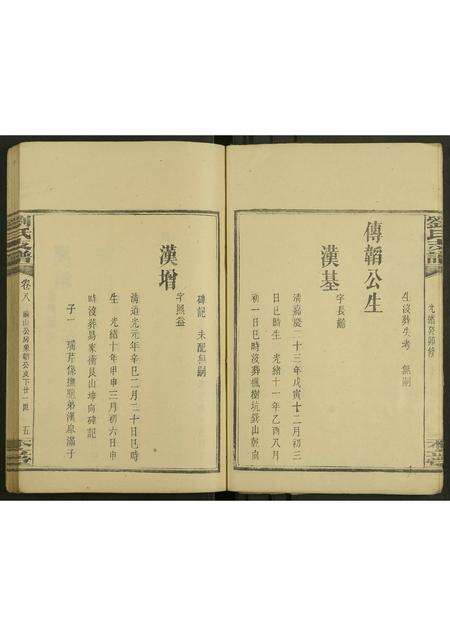 劉氏支譜
光緒癸卯修
生沒葬生考 無嗣
傳韜公生
漢基
字長齡
清嘉慶二十三年戊寅十二月初三
日巳時生 光緒十一年乙酉八月
初一日巳時沒葬楓樹坑艮山乾向
碑記 未配無嗣
漢增
字無益
清道光元年辛巳二月二十日巳時
生 光緒十年甲申三月初六日申
時沒葬易家衝艮山坤向碑記
子一 瑞芹係撫胞弟漢泉滿子
劉氏支譜
卷八
五